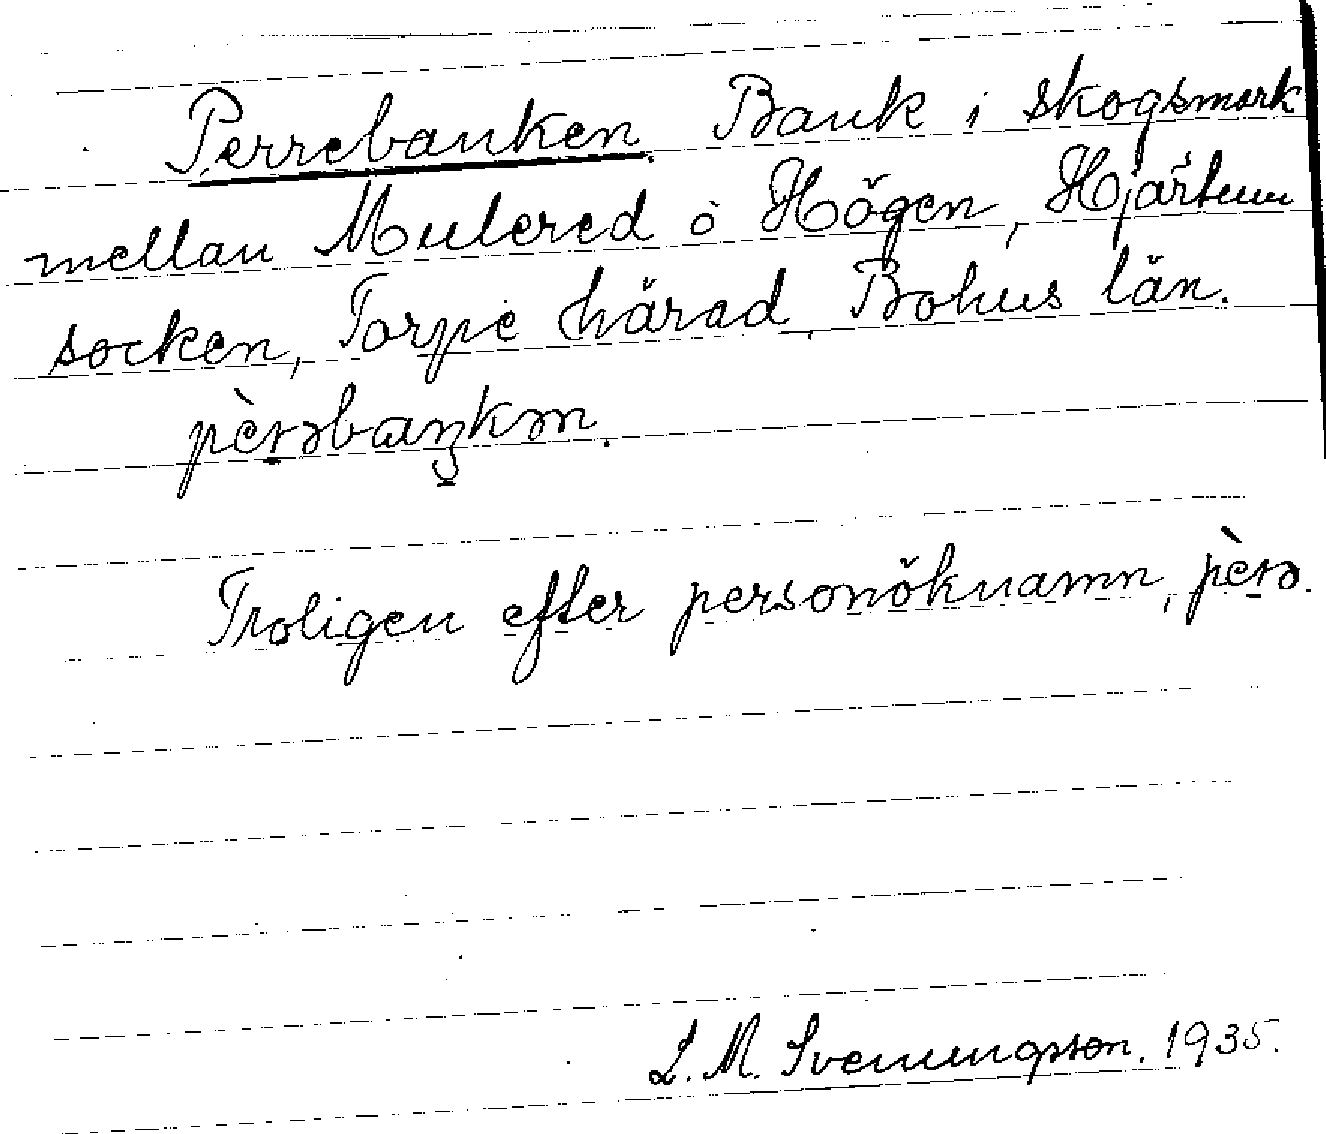 Perrebanken. Bank i skogsmark
mellan Mulered o Högen, Hjärtum
socken, Torpe härad, Bohus län.
pèrəbaŋkən.
Troligen efter personöknamn, pèrə.
L. M. Svenungson. 1935.